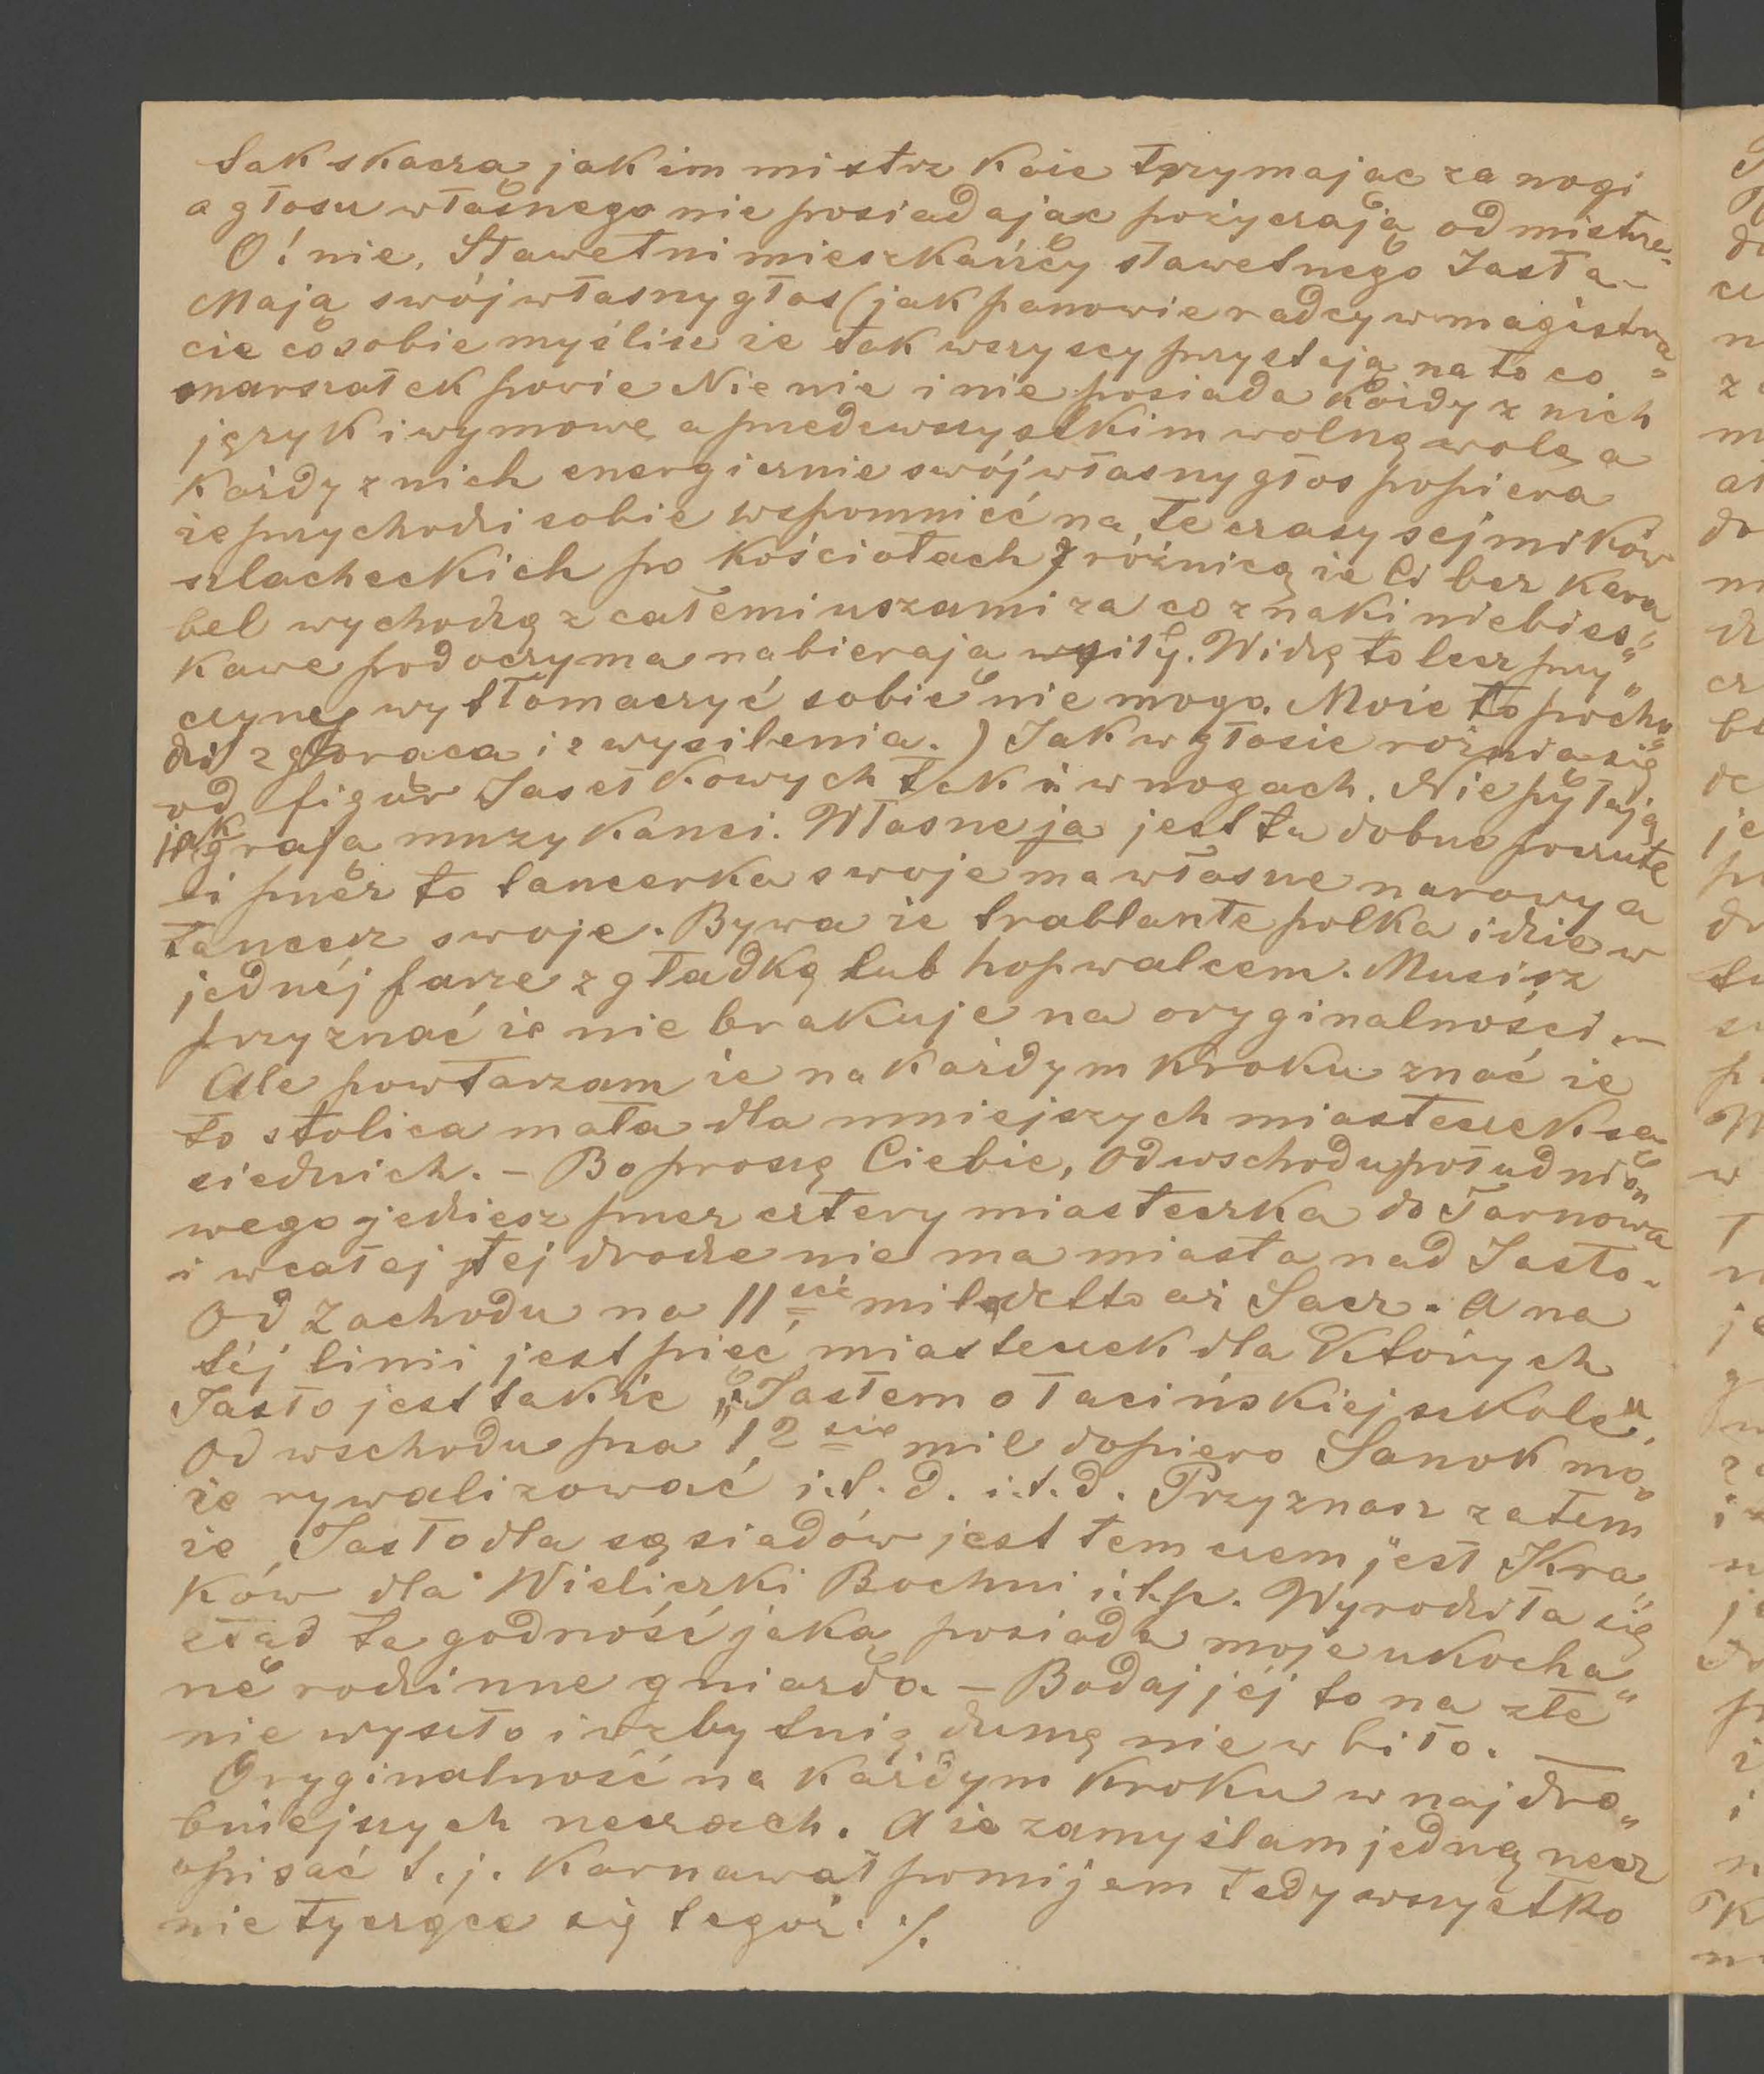 Tak skacza jak im mistrz każe trzymajac za nogi
a głosu własnego nie posiadajac pożyczają od mistrz„
O! nie. Sławetni mieszkańcy sławetnego Jasła –
Mają swój własny głos (jak panowie radcy w magistra„
cie co sobie myślisz że tak wszyscy przystają na to co
marszałek powie Nie nie i nie posiada każdy z nich
język i wymowę a przedewszystkim wolną wolę a
każdy z nich energicznie swój własny głos popiera
że przychodzi sobie wspomnieć na te czasy sejmików
szlacheckich po kościołach z różnicą że Ci bez kara
bel wychodzą z całemi uszami za co znaki niebies„
kawe pod oczyma nabieraja siły. Widzę to lecz przy„
czynę wytłomaczyć sobie nie mogę. Może to pocho„
dzi z gorąca i z wysilenia.) Jak w głosie rożnia się
od figur Jasełkowych tak i w nogach. Nie pytają
jak graja muzykanci. Własne ja jest tu dobrze poczute
i przez to tancerka swoje ma własne narowy a
tancerz swoje. Bywa że trablante polka idzie w
jednéj parze z gładką lub hopwalcem. Musisz
przyznać że nie brakuje na oryginalności –
Ale powtarzam że na każdym kroku znać że
to stolica mała dla mniejszych miasteczek są„
siednich. – Bo proszę Ciebie, od wschodu południo„
wego jedziesz przez cztery miasteczka do Tarnowa
i w całej tej drodze nie ma miasta nad Jasło –
Od Zachodu na 11ście mil aż Sącz. A na
téj linii jest pięć miasteczek dla których
Jasło jest także „Jasłem o łacińskiej szkole".
Od wschodu na 12ście mil dopiero Sanok mo„
że rywalizować i.t.d. i.t.d. Przyznasz zatem
że Jasło dla sąsiadów jest tem czem jest Kra„
ków dla Wieliczki Bochni i.t.p. Wyrodziła się
stąd ta godność jaką posiada moje ukocha„
ne rodzinne gniazdo. – Bodaj jéj to na złe
nie wyszło i w zbytnią dumę nie wbiło.
Oryginalność na każdym kroku w najdro„
bniejszych rzeczach. A że zamyślam jedną rzecz
opisać t.j. Karnawał pomijam tedy wszystko
nie tyczące się tegoż. ./.